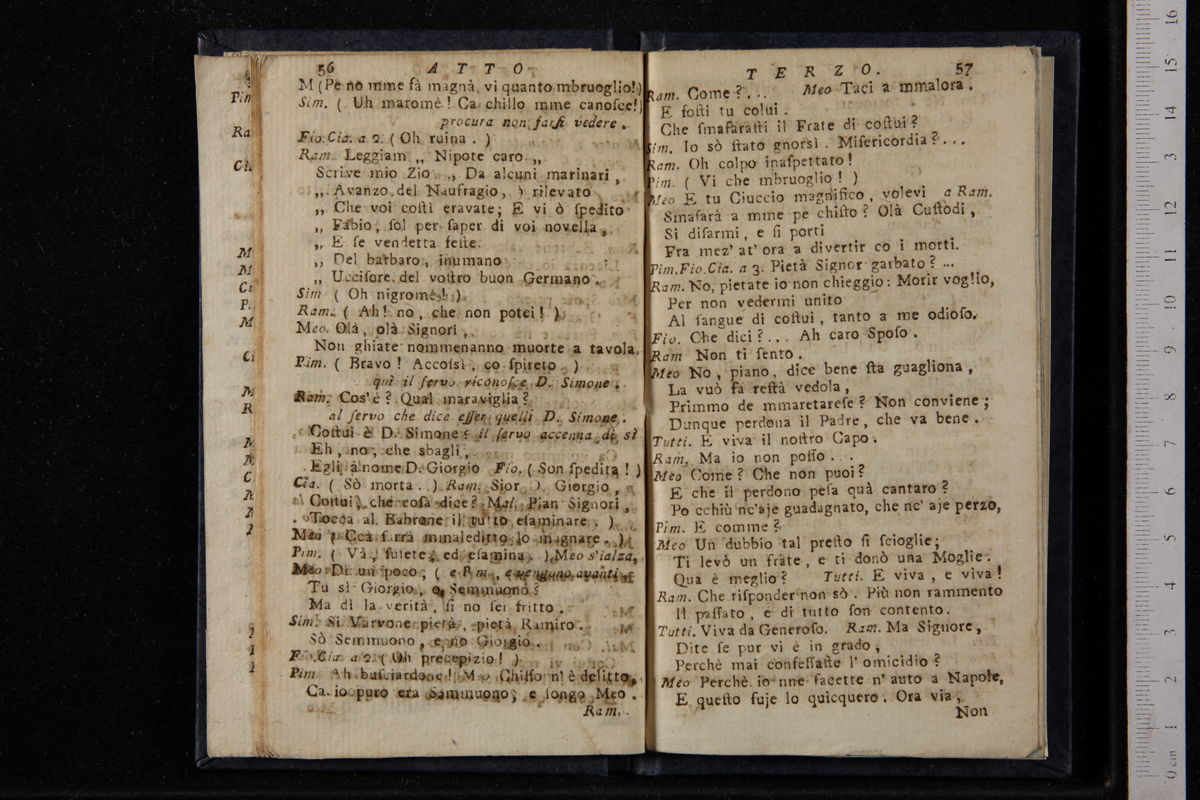 56 ATTO
M (Pe no mme fà magnà, vi quanto mbruoglio!)
Sim. ( Uh maromè! Ca chillo mme canoſce!)
procura non farſi vedere.
Fio.Cia. a 2. ( Oh ruina. )
Ram. Leggiam „ Nipote caro „
Scrive mio Zio. „ Da alcuni marinari,
„ Avanzo del Naufragio, ò rilevato
„ Che voi coſtì eravate; E vi ò ſpedito
„ Fabio, ſol per ſaper di voi novella,
„ E ſe vendetta feſte.
„ Del barbaro, inumano
„ Ucciſore del voſtro buon Germano.
Sim ( Oh nigromè! )
Ram. ( Ah! no, che non potei! )
Meo. Olà, olà Signori,
Non ghiate nommenanno muorte a tavola,
Pim. ( Bravo! Accoſsì, co ſpireto. )
quì il ſervo riconoſce D. Simone.
Ram. Cos'è? Qual maraviglia?
al ſervo che dice eſſer quelli D. Simone.
Coſtui è D. Simone? il ſervo accenna di sì
Eh, no, che sbagli,
Egli à nome D. Giorgio Fio. ( Son ſpedita! )
Cia. ( Sò morta. ) Ram. Sior D. Giorgio,
Coſtui, che coſa dice? Mal. Pian Signori,
Tocca al Babrone il tutto eſaminare. )
Meo ( Ccà farrà mmaleditto lo magnare. )
Pim. ( Và, ſuiete, ed eſamina. ) Meo s'alza,
Meo Di un poco, ( e Pim., e vengono avanti,
Tu sì Giorgio, o Semmuono?
Ma dì la verità, ſi no ſei fritto.
Sim. Si Varvone pietà, pietà Ramiro.
Sò Semmuono, e no Giorgio.
Fio.Cia. a 2. ( Oh precepizio! )
Pim Ah buſciardone! Meo Chiſſo n'è delitto,
Ca io puro era Sammuono, e ſongo Meo.
Ram.
TERZO. 57
Ram. Come?... Meo Taci a mmalora.
E foſti tu colui.
Che ſmafaraſti il Frate di coſtui?
Sim. Io sò ſtato gnorsì. Miſericordia?...
Ram. Oh colpo inaſpettato!
Pim. ( Vi che mbruoglio! )
Meo E tu Ciuccio magnifico, volevi a Ram.
Smafarà a mme pe chiſto? Olà Cuſtodi,
Si diſarmi, e ſi porti
Fra mez' at' ora a divertir co i morti.
Pim.Fio.Cia. a 3. Pietà Signor garbato?...
Ram. No, pietate io non chieggio: Morir voglio,
Per non vedermi unito
Al ſangue di coſtui, tanto a me odioſo.
Fio. Che dici?... Ah caro Spoſo.
Ram Non ti ſento.
Meo No, piano, dice bene ſta guagliona,
La vuò fa reſtà vedola,
Primmo de mmaretareſe? Non conviene;
Dunque perdona il Padre, che va bene.
Tutti. E viva il noſtro Capo.
Ram. Ma io non poſſo...
Meo Come? Che non puoi?
E che il perdono peſa quà cantaro?
Po cchiù nc'aje guadagnato, che nc' aje perzo,
Pim. E comme?
Meo Un dubbio tal preſto ſi ſcioglie;
Ti levò un frate, e ti donò una Moglie.
Qua è meglio? Tutti. E viva, e viva!
Ram. Che riſponder non sò. Più non rammento
Il paſſato, e di tutto ſon contento.
Tutti. Viva da Generoſo. Ram. Ma Signore,
Dite ſe pur vi è in grado,
Perchè mai confeſſaſte l' omicidio?
Meo Perchè io nne facette n' auto a Napole,
E queſto fuje lo quicquero. Ora via,
Non